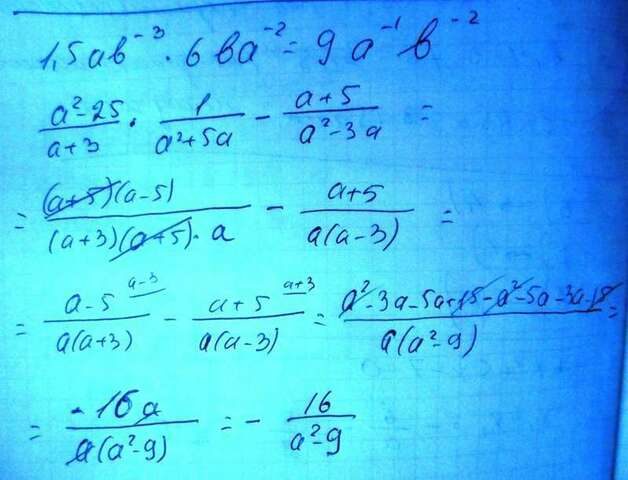 1,5ab⁻³ · 6ba⁻² = 9a⁻¹b⁻²
(a²-25)/(a+3) · 1/(a²+5a) - (a+5)/(a²-3a) =
= ((a+5)(a-5))/((a+3)(a+5)·a) - (a+5)/(a(a-3)) =
= (a-5)/(a(a+3)) ^(a-3) - (a+5)/(a(a-3)) ^(a+3) = (a²-3a-5a+15-a²-5a-3a-15)/(a(a²-9)) =
= (-16a)/(a(a²-9)) = - 16/(a²-9)